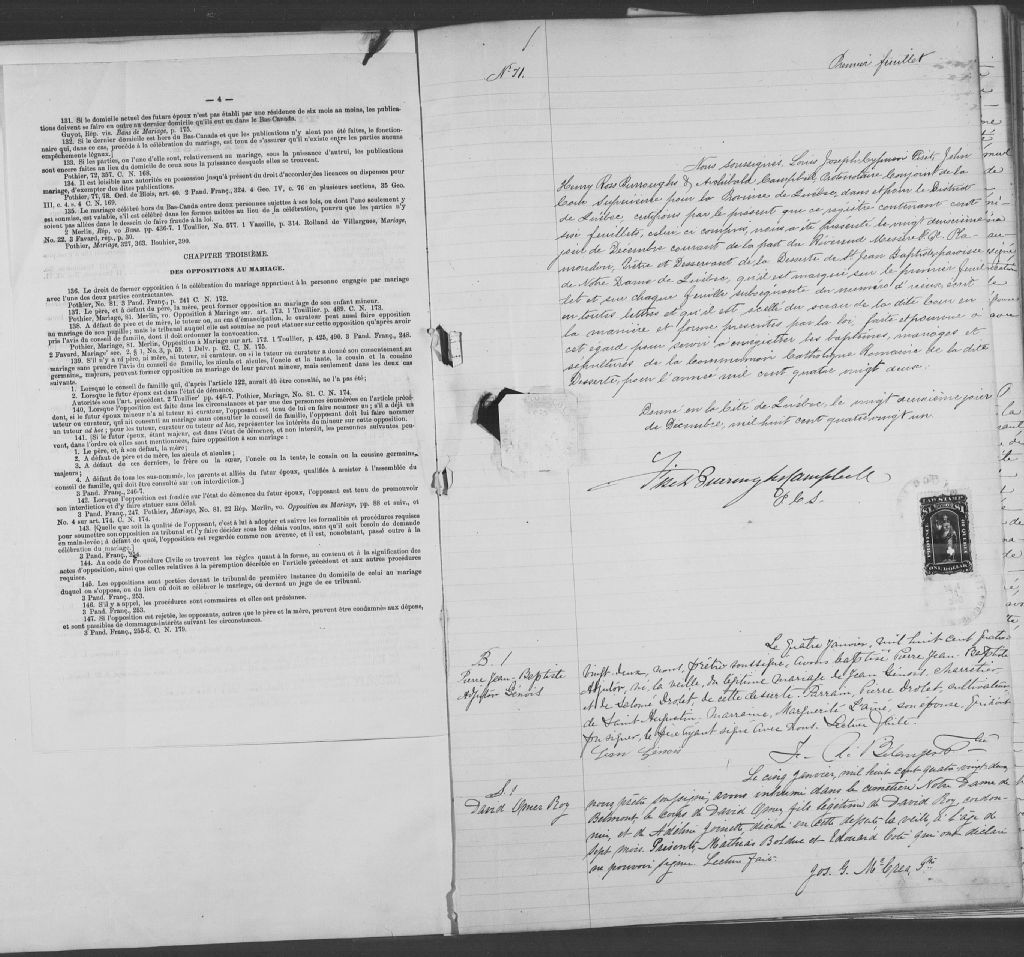 — 4 —
131. Si le domicile actuel des futurs époux n'est pas établi par une résidence de six mois au moins, les publica-
tions doivent se faire en outre au dernier domicile qu'ils ont eu dans le Bas-Canada.
Guyot, Rép. vis. Bans de Mariage, p. 175.
132. Si le dernier domicile est hors du Bas-Canada et que les publications n'y aient pas été faites, le fonction-
naire qui, dans ce cas, procède à la célébration du mariage, est tenu de s'assurer qu'il n'existe entre les parties aucuns
empêchements légaux.]
133. Si les parties, ou l'une d'elles sont, relativement au mariage, sous la puissance d'autrui, les publications
sont encore faites au lieu du domicile de ceux sous la puissance desquels elles se trouvent.
Pothier, 72, 357. C. N. 168.
134. Il est loisible aux autorités en possession jusqu'à présent du droit d'accorder des licences ou dispenses pour
mariage, d'exempter des dites publications.
Pothier, 77, 78. Ord. de Blois, art. 40. 2 Pand. Franç., 324. 4 Geo. IV, c. 76 en plusieurs sections, 35 Geo.
III, c. 4. s. 4 C. N. 169.
135. Le mariage célébré hors du Bas-Canada entre deux personnes sujettes à ses lois, ou dont l'une seulement y
est soumise, est valable, s'il est célébré dans les formes usitées au lieu de la célébration, pourvu que les parties n'y
soient pas allées dans le dessein de faire fraude à la loi.
2 Merlin, Rép, vo Bans. pp. 436-7. 1 Toullier, No. 577. 1 Vazeille, p. 314. Rolland de Villargues, Mariage,
No. 22. 3 Favard, rép., p. 30.
Pothier, Mariage, 327, 363. Bouhier, 390.
CHAPITRE TROISIÈME.
DES OPPOSITIONS AU MARIAGE.
136. Le droit de former opposition à la célébration du mariage appartient à la personne engagée par mariage
avec l'une des deux parties contractantes.
Pothier, No. 81. 3 Pand. Franç., p. 241 C. N. 172.
137. Le père, et à défaut du père, la mère, peut former opposition au mariage de son enfant mineur.
Pothier, Mariage, 81. Merlin, vo. Opposition à Mariage sur art. 173. 1 Toullier. p. 489. C. N. 173.
138. A défaut de père et de mère, le tuteur ou, au cas d'émancipation, le curateur peut aussi faire opposition
au mariage de son pupille; mais le tribunal auquel elle est soumise ne peut statuer sur cette opposition qu'après avoir
pris l'avis du conseil de famille, dont il doit ordonner la convocation.
Pothier, Mariage, 81. Merlin, Opposition à Mariage sur art. 172. 1 Toullier, p. 425, 490. 3 Pand. Franç., 248.
2 Favard, Mariage sec. 2, § 1, No. 3, p. 59. 1 Delv. p. 62. C. N. 175.
139. S'il n'y a ni père, ni mère, ni tuteur, ni curateur, ou si le tuteur ou curateur a donné son consentement au
mariage sans prendre l'avis du conseil de famille, les aïeuls et aïeules, l'oncle et la tante, le cousin et la cousine
germains, majeurs, peuvent former opposition au mariage de leur parent mineur, mais seulement dans les deux cas
suivants.
1. Lorsque le conseil de famille qui, d'après l'article 122, aurait dû être consulté, ne l'a pas été;
2. Lorsque le futur époux est dans l'état de démence.
Autorités sous l'art. précédent. 2 Toullier pp. 446-7. Pothier, Mariage, No. 81. C. N. 174.
140. Lorsque l'opposition est faite dans les circonstances et par une des personnes énumérées en l'article précé-
dent, si le futur époux mineur n'a ni tuteur ni curateur, l'opposant est tenu de lui en faire nommer un; s'il a déjà un
tuteur ou curateur, qui ait consenti au mariage sans consulter le conseil de famille, l'opposant doit lui faire nommer
un tuteur ad hoc; pour les tuteur, curateur ou tuteur ad hoc, représenter les intérêts du mineur sur cette opposition.
141. [Si le futur époux, étant majeur, est dans l'état de démence, et non interdit, les personnes suivantes peu-
vent, dans l'ordre où elles sont mentionnées, faire opposition à son mariage:
1. Le père, et, à son défaut, la mère;
2. A défaut de père et de mère, les aïeuls et aïeules;
3. A défaut de ces derniers, le frère ou la sœur, l'oncle ou la tante, le cousin ou la cousine germains,
majeurs;
4. A défaut de tous les sus-nommés, les parents et alliés du futur époux, qualifiés à assister à l'assemblée du
conseil de famille, qui doit être consulté sur son interdiction.]
3 Pand. Franç., 246-7.
142. Lorsque l'opposition est fondée sur l'état de démence du futur époux, l'opposant est tenu de promouvoir
son interdiction et d'y faire statuer sans délai.
3 Pand. Franç., 247. Pothier, Mariage, No. 81. 22 Rép. Merlin, vo. Opposition au Mariage, pp. 88 et suiv., et
No. 4 sur art. 174. C. N. 174.
143. [Quelle que soit la qualité de l'opposant, c'est à lui à adopter et suivre les formalités et procédures requises
pour soumettre son opposition au tribunal et l'y faire décider sous les délais voulus, sans qu'il soit besoin de demande
en main-levée; à défaut de quoi, l'opposition est regardée comme non avenue, et il est, nonobstant, passé outre à la
célébration du mariage.]
3 Pand. Franç., 254.
144. Au code de Procédure Civile se trouvent les règles quant à la forme, au contenu et à la signification des
actes d'opposition, ainsi que celles relatives à la péremption décrétée en l'article précédent et aux autres procédures
requises.
145. Les oppositions sont portées devant le tribunal de première instance du domicile de celui au mariage
duquel on s'oppose, ou du lieu où doit se célébrer le mariage, ou devant un juge de ce tribunal.
3 Pand. Franç., 253.
146. S'il y a appel, les procédures sont sommaires et elles ont préséance.
3 Pand. Franç., 253.
147. Si l'opposition est rejetée, les opposants, autres que le père et la mère, peuvent être condamnés aux dépens,
et sont passibles de dommages-intérêts suivant les circonstances.
3 Pand. Franç., 255-6. C. N. 179.
No 71.
Premier feuillet
Nous soussignés, Louis Joseph Cyprien Fiset, John
Henry Ross Burroughs & Archibald Campbell Protonotaire Conjoint de la
Cour Supérieure pour la Province de Québec, dans et pour le District
de Québec, certifions par le présent que ce registre contenant cent
six feuillets, celui ci compris, nous a été présenté le vingt deuxième
jour de Décembre courant de la part du Révérend Messire F. X. Pla-
mondon, Prêtre et Desservant de la Desserte de St Jean Baptiste, paroisse
de Notre Dame de Québec, qu'il est marqué sur le premier feuil-
let et sur chaque feuille subséquente du numéro d'iceux, écrit
en toutes lettres et qu'il est scellé du sceau de la dite Cour en
la manière et forme prescrites par la loi, faite et pourvue à
cet égard pour servir à enregistrer les baptêmes, mariages et
sépultures de la Communion Catholique Romaine de la dite
Desserte, pour l'année mil huit cent quatre vingt deux.
Donné en la Cité de Québec, le vingt deuxième jour
de Décembre, mil huit cent quatre vingt un
Fiset Burroughs Campbell
P.C.S.
LAW STAMP
PROVINCE DE QUEBEC
ONE DOLLAR
B. 1
Pierre Jean-Baptiste
Adjutor Génois
Le quatre janvier, mil huit cent quatre-
vingt deux, nous, prêtre soussigné, avons baptisé Pierre Jean-Baptiste
Adjutor, né la veille, du légitime mariage de Jean Génois, charretier
et de Salomé Drolet, de cette desserte. Parrain, Pierre Drolet, cultivateur
de Saint Augustin, Marraine, Marguerite Lainé, son épouse,
signer, le père ayant signé avec nous. Lecture faite.
Jean Génois
F. A. Bélanger Ptre
S. 1
David Omer Roy
Le cinq janvier, mil huit cent quatre vingt deux
nous prêtre soussigné, avons inhumé dans le cimetière Notre Dame de
Belmont, le corps de David Omer, fils légitime de David Roy, cordon-
nier, et de Adéline décédé en cette desserte la veille, à l'âge de
sept mois. Présents, Mathias Bolduc et Edouard Coté qui ont déclaré
ne pouvoir signer. Lecture faite.
Jos. G. McCrea, Ptre